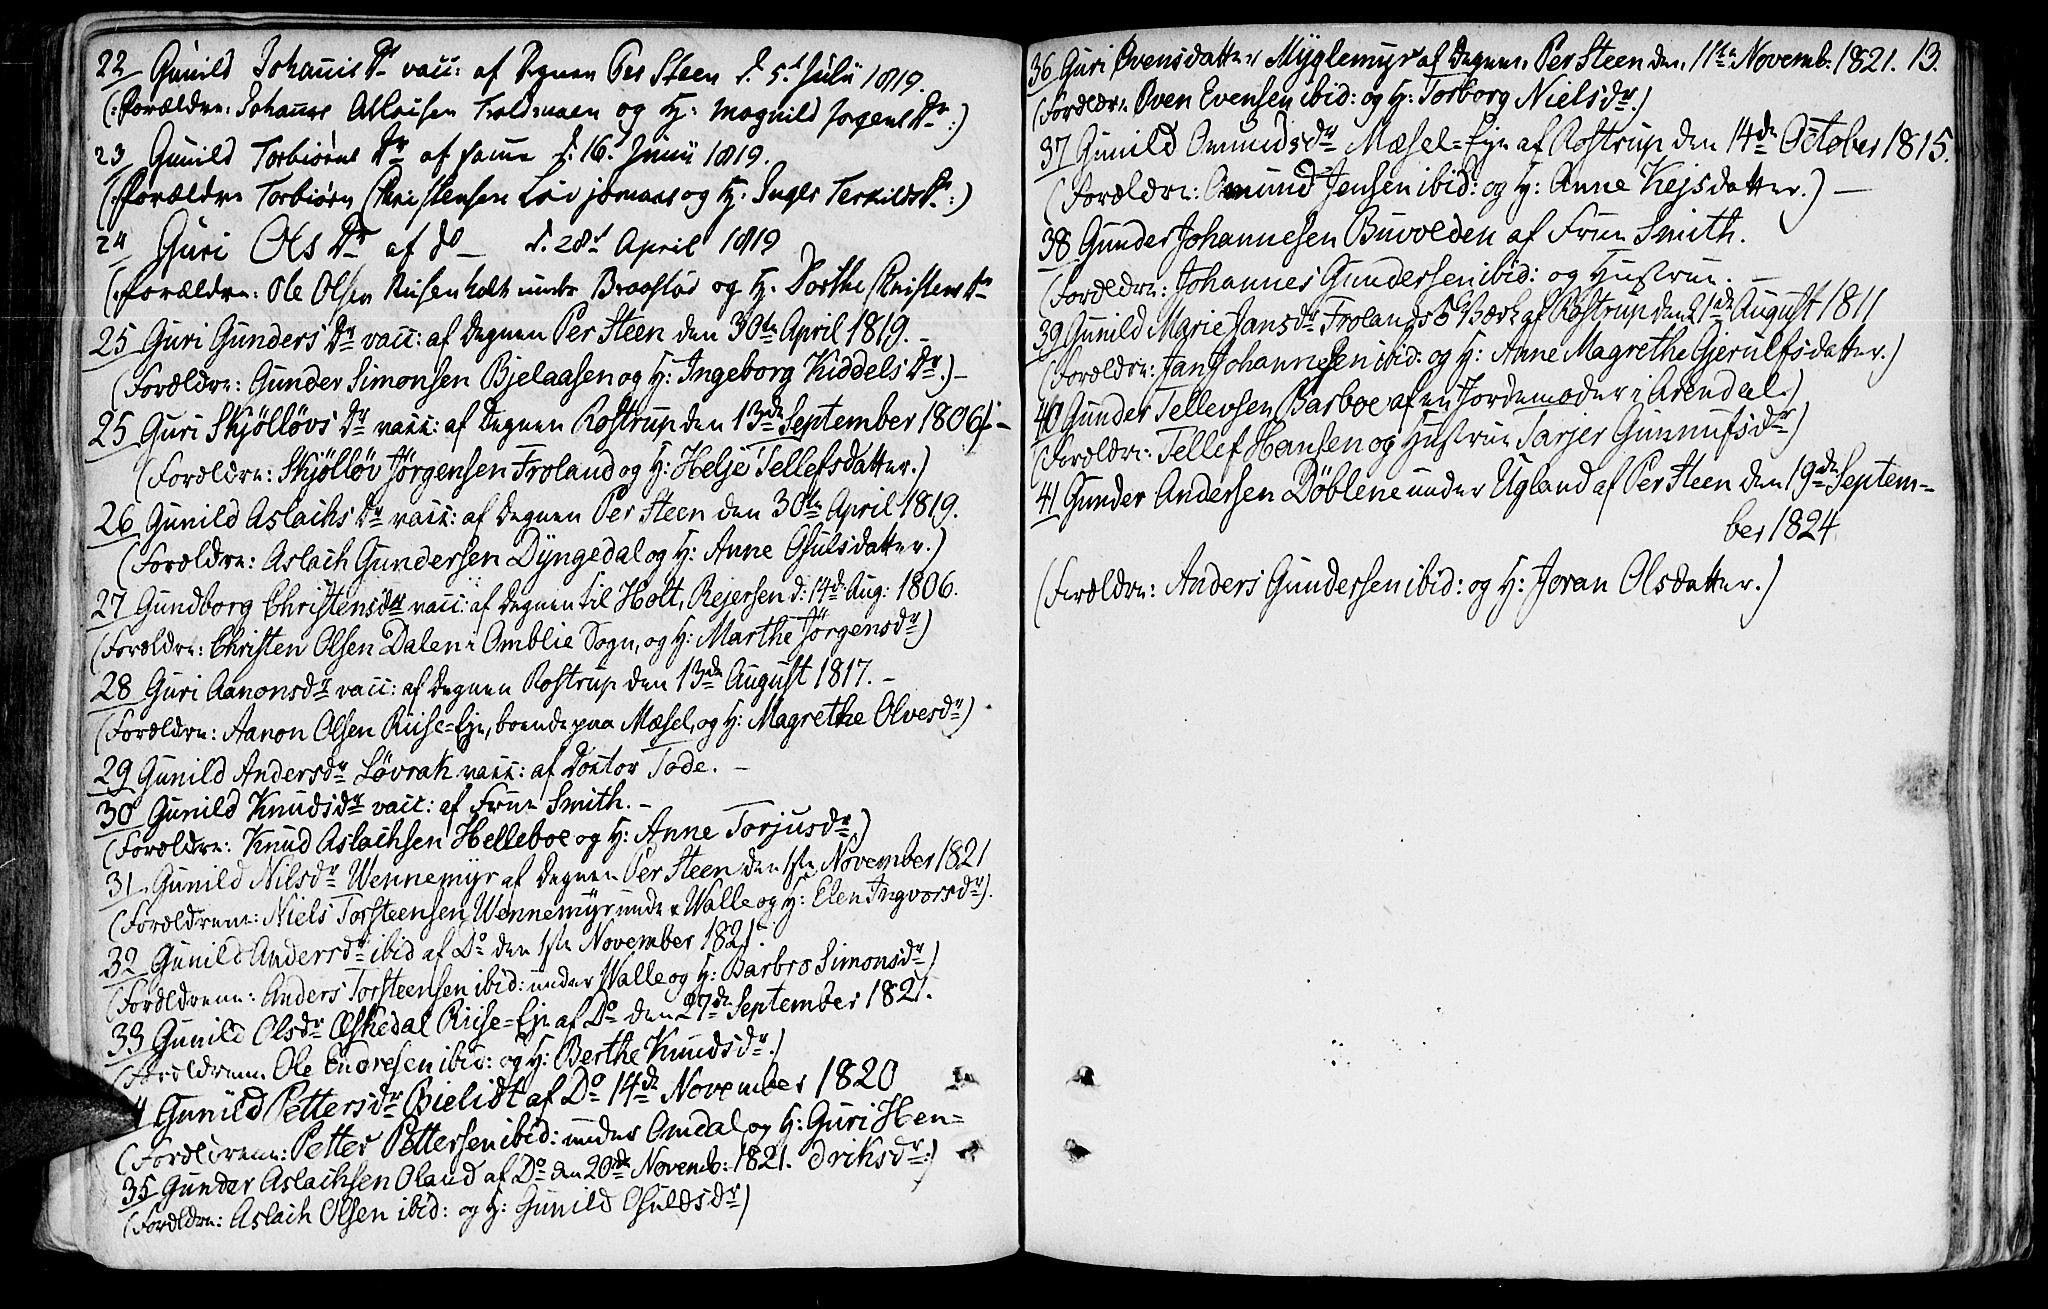 22 Gunild Johannis Dr vacc: af Degnen Per Steen d. 5.t Julii 1819.
(: Forældre: Johannes Asla[c]hsen og H: Magnild Jørgens Dr :)
23 Gunild Torbiørns Dr af samme d: 16.t Junii 1819.
(: Forældre Torbiørn Christensen og H. Inger Terkilds Dr. :)
24 Guri Ols Dr af do d. 28.t April 1819
(: Forældre: Ole Olsen Risenholt under Braastøe og H. Dorthe Christens Dr
25 Guri Gunders Dr vacc: af Degnen Per Steen den 30te April 1819. –
(Forældre: Gunder Simonsen Bjelaasen og H: Ingeborg Kiddels Dr.) –
25 Guri Skjölløvs Dr vacc: af Degnen Rostrup den 13de September 1806. –
(Forældre: Skjölløv Jørgensen Froland og H: Helje Tellefsdatter.)
26 Gunild Aslachs Dr vacc: af Degnen Per Steen den 30te April 1819.
(Forældre: Aslach Gundersen Dyngedal og H: Anne Osulsdatter.)
27 Gundborg Christensdr vacc: af Degnen til Holt, Rejersen d: 14de Aug: 1806.
(Forældre: Christen Olsen Dalen i Omblie Sogn, og H: Marthe Jørgensdr)
28 Guri Aanonsdr vacc: af Degnen Rostrup den 13de August 1817. –
(Forældre: Aanon Olsen Riise-Eje, boende paa Mæsel, og H: Magrethe Olvesdr)
29 Gunild Andersdr Løvrak vacc: af Doctor Tode. –
30 Gunild Knudsdr vacc: af Frue Smith. –
(Forældre: Knud Aslachsen Helleboe og H: Anne Torjusdr)
31 Gunild Nilsdr Wennemyr af Degnen Per Steen den 1ste November 1821
(Forældrene: Niels Torsteensen Wennemyr under Walle og H: Elen Ingvorsdr).
32 Gunild Andersdr ibid af Do den 1ste November 1821.
(Forældrene: Anders Torsteensen ibid: under Walle og H: Barbro Simonsdr)
33 Gunild Olsdr Æskedal Riise-Eje af Do den 27de September 1821.
(Forældrene Ole Endresen ibid: og H: Berthe Knudsdr.)
4 Gunild Pettersdr Bielidt af Do 14de November 1820
(Forældrene: Petter Pettersen ibid: under Omdal og H: Guri Hen=
driksdr.)
35 Gunder Aslachsen Oland af Do den 20de Novemb: 1821.
(Forældre: Aslach Olsen ibid: og H: Gunild Osuldsdr)
36 Guri Ovensdatter Myglemyr af Degnen Per Steen den 11te Novemb: 1821. 13.
(Forældre Oven Evensen ibid: og H: Torborg Nielsdr.)
37 Gunild Omundsdr Mæsel=Eje af Rostrup den 14de October 1815.
(Forældre: Omund Jensen ibid: og H: Anne Kejsdatter.) –
38 Gunder Johannesen Buvolden af Frue Smith.
(Forældre: Johannes Gundersen ibid: og Hustrue. –
39 Gunild Marie Jansdr Frolands Værk af Rostrup den 21de August 1811
(Forældre: Jan Johannesen ibid: og H: Anne Magrethe Gjerulfsdatter.)
40 Gunder Tellevsen Barboe af en Jordemoder i Arendal.)
(Forældre: Tellef Hansen og Hustrue Tarjer Gunnufsdr)
41 Gunder Andersen Döblene under Ugland af Per Steen den 19de Septem=
ber 1824
(Forældre: Anders Gundersen ibid: og H: Joran Olsdatter.)